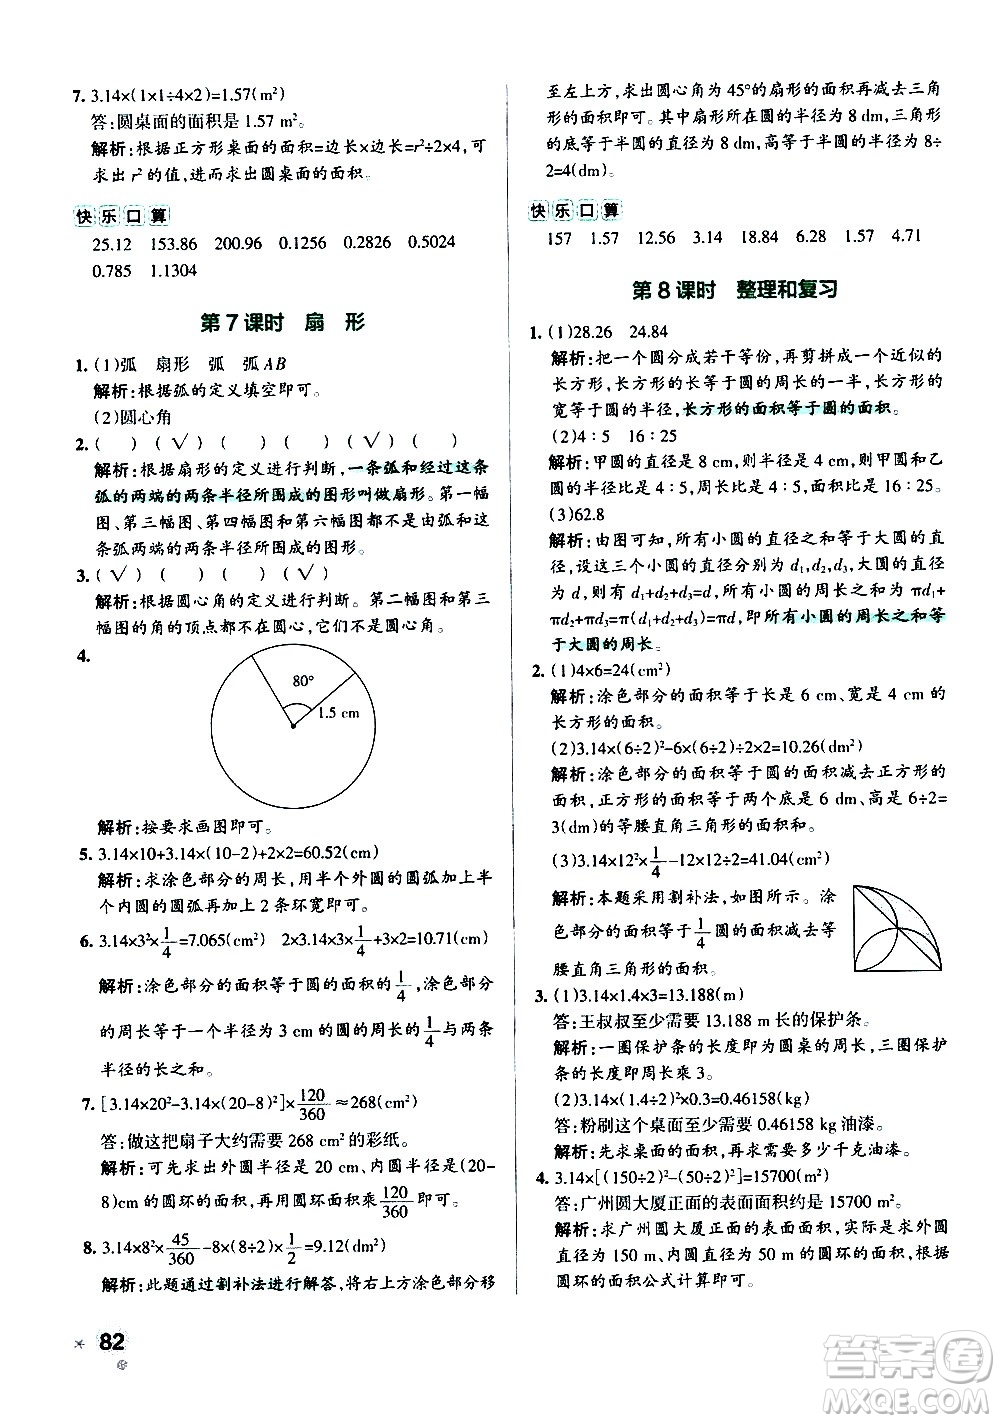 7. 3.14×(1×1÷4×2)=1.57(m²)
答:圆桌面的面积是 1.57 m²。
解析:根据正方形桌面的面积=边长×边长=r²÷2×4,可
求出 r² 的值,进而求出圆桌面的面积。
快乐口算
25.12 153.86 200.96 0.1256 0.2826 0.5024
0.785 1.1304
第 7 课时 扇 形
1. (1)弧 扇形 弧 弧 AB
解析:根据弧的定义填空即可。
(2)圆心角
2. ( ) (√) ( ) ( ) (√) ( )
解析:根据扇形的定义进行判断,一条弧和经过这条
弧的两端的两条半径所围成的图形叫做扇形。第一幅
图、第三幅图、第四幅图和第六幅图都不是由弧和这
条弧两端的两条半径所围成的图形。
3. (√) ( ) ( ) (√)
解析:根据圆心角的定义进行判断。第二幅图和第三
幅图的角的顶点都不在圆心,它们不是圆心角。
4.
80°
1.5 cm
解析:按要求画图即可。
5. 3.14×10+3.14×(10-2)+2×2=60.52(cm)
解析:求涂色部分的周长,用半个外圆的圆弧加上半
个内圆的圆弧再加上 2 条环宽即可。
6. 3.14×3²×1/4=7.065(cm²) 2×3.14×3×1/4+3×2=10.71(cm)
解析:涂色部分的面积等于圆的面积的1/4,涂色部分
的周长等于一个半径为 3 cm 的圆的周长的1/4与两条
半径的长之和。
7. [3.14×20²-3.14×(20-8)²]×120/360≈268(cm²)
答:做这把扇子大约需要 268 cm² 的彩纸。
解析:可先求出外圆半径是 20 cm、内圆半径是(20-
8)cm 的圆环的面积,再用圆环面积乘120/360即可。
8. 3.14×8²×45/360-8×(8÷2)×1/2=9.12(dm²)
解析:此题通过割补法进行解答,将右上方涂色部分移
82
至左上方,求出圆心角为 45°的扇形的面积再减去三角
形的面积即可。其中扇形所在圆的半径为 8 dm,三角形
的底等于半圆的直径为 8 dm,高等于半圆的半径为 8÷
2=4(dm)。
快乐口算
157 1.57 12.56 3.14 18.84 6.28 1.57 4.71
第 8 课时 整理和复习
1. (1)28.26 24.84
解析:把一个圆分成若干等份,再剪拼成一个近似的
长方形,长方形的长等于圆的周长的一半,长方形的
宽等于圆的半径,长方形的面积等于圆的面积。
(2)4∶5 16∶25
解析:甲圆的直径是 8 cm,则半径是 4 cm,甲圆和乙
圆的半径比是 4∶5,周长比是 4∶5,面积比是 16∶25。
(3)62.8
解析:由图可知,所有小圆的直径之和等于大圆的直
径,设这三个小圆的直径分别为 d₁,d₂,d₃,大圆的直径
为 d,则有 d₁+d₂+d₃=d,所有小圆的周长之和为 πd₁+
πd₂+πd₃=π(d₁+d₂+d₃)=πd,即所有小圆的周长之和等
于大圆的周长。
2. (1)4×6=24(cm²)
解析:涂色部分的面积等于长是 6 cm、宽是 4 cm 的
长方形的面积。
(2)3.14×(6÷2)²-6×(6÷2)÷2×2=10.26(dm²)
解析:涂色部分的面积等于圆的面积减去正方形的
面积,正方形的面积等于两个底等于 6 dm、高是 6÷2=
3(dm)的等腰直角三角形的面积和。
(3)3.14×12²×1/4-12×12÷2=41.04(cm²)
解析:本题采用割补法,如图所示。涂
色部分的面积等于1/4圆的面积减去等
腰直角三角形的面积。
3. (1)3.14×1.4×3=13.188(m)
答:王叔叔至少需要 13.188 m 长的保护条。
解析:一圈保护条的长度即为圆桌的周长,三圈保护
条的长度即周长乘 3。
(2)3.14×(1.4÷2)²×0.3=0.46158(kg)
答:粉刷这个桌面至少需要 0.46158 kg 油漆。
解析:先求出桌面的面积,再求需要多少千克油漆。
4. 3.14×[(150÷2)²-(50÷2)²]=15700(m²)
答:广州圆大厦正面的表面面积约是 15700 m²。
解析:求广州圆大厦正面的表面面积,实际是求外圆
直径为 150 m、内圆直径为 50 m 的圆环的面积,根据
圆环的面积公式计算即可。
答案圈
MXQE.COM